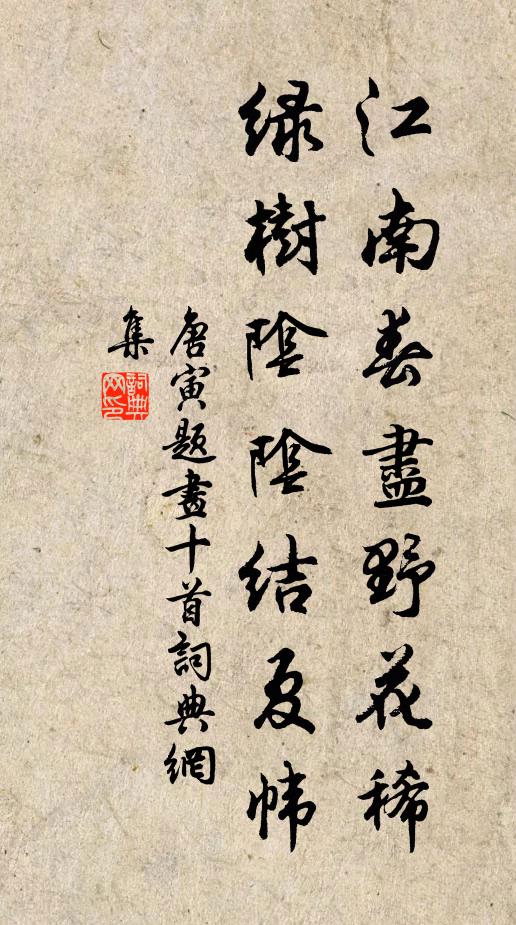 江南春盡野花稀
綠樹陰陰結夏帏
唐寅題畫十首詞典網
集
詞典
网印